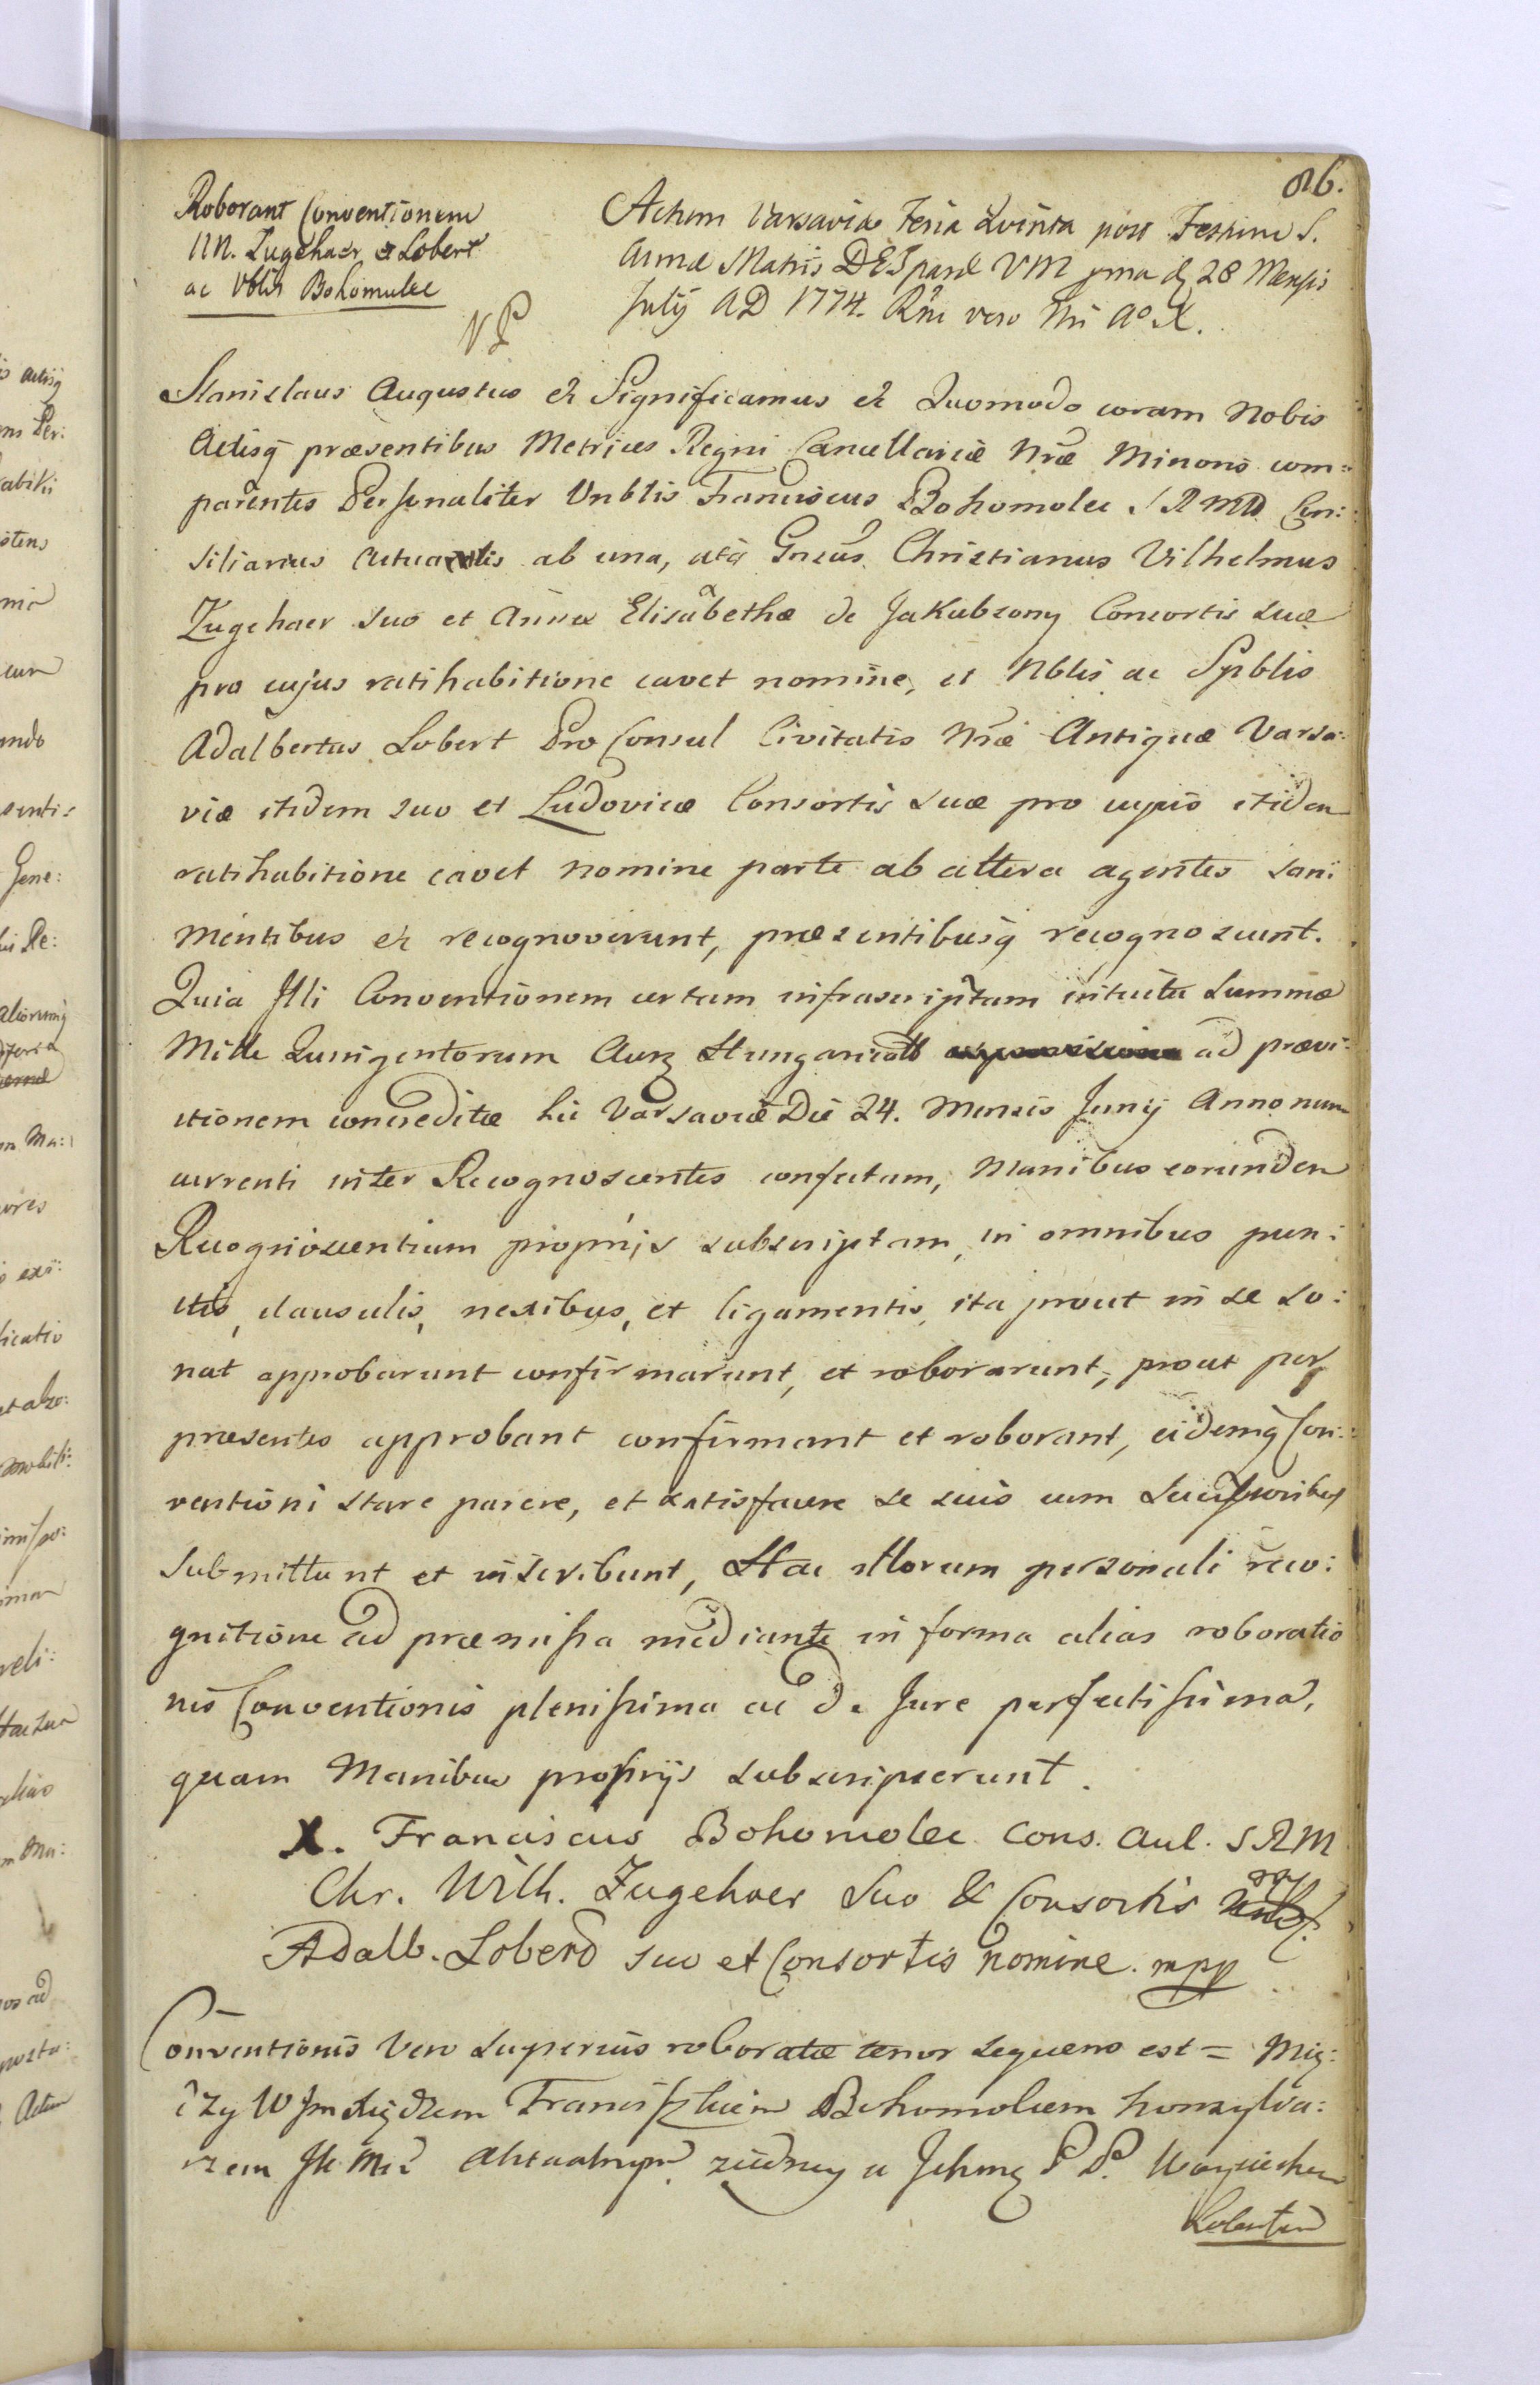 86.
Roborant Conventionem
NN. Zugehaer et Lobert
ac Vblis Bohomulec
Actum Varsaviæ Feria Quinta post Festum S.
Annæ Matris DEI paræ VM
28 Mensis
July AD 1774. Rni vero Nri A° X.
Stanislaus Augustus et Significamus et Quomodo coram Nobis
Actisq præsentibus Metrices Regni Cancellariæ Nræ Minoris com=
parentes Personaliter Vnblis Franciscus Bohomolec SRMtis Con:
siliarius Actualis ab una, atq Gnsus Christianus Vilhelmus
Zugehaer suo et Annæ Elisabethæ de Jakubsony Consortis suæ
pro cujus ratihabitione cavet nomine, et Nblis ac Spblis
Adalbertus Lobert Pro Consul Civitatis Nræ Antiquæ Varsa:
viæ itidem suo et Ludovicæ Consortis suæ pro cujus itidem
ratihabitione cavet nomine parte ab altera agentes sani
mentibus et recognoverunt, præsentibusq recognoscunt.
Quia Illi Conventionem certam infrascriptam intuitu summæ
Mille Quingentorum Aure Hungaricall ad provi:
ctionem concreditæ hic Varsaviæ Die 24. Mensis Junij Anno nunc
currenti inter Recognoscentes confectam, Manibus eorundem
Recognoscentium proprijs subscriptam, in omnibus pun:
ctis, clausulis, nexibus, et ligamentis, ita prout in se so:
nat approbarunt confirmarunt, et roborarunt, prout per
præsentes approbant confirmant et roborant, eidemq Con:
ventioni stare parere, et satisfacere se suis cum Successoribus
submittunt et inscribunt, Hac illorum personali reco:
gnitione ad præmissa mediante in forma alias roboratio
nis Conventionis plenissima ac de Jure perfectissima,
quam Manibus proprijs subscripserunt.
X. Franciscus Bohomolec Cons. Aul. SRM
Chr. Wilh. Zugehoer Suo & Consortis
Adalb. Loberd suo et Consortis nomine. mpp
Conventionis vero superius roboratæ tenor sequens est = Mię:
dzy W Jm Xiędzem Franciszkiem Bohomolcem konsylia:
rzem JK Mci Aktualnym z iedney a Ichmę P P. Woyciechem
Lobertem